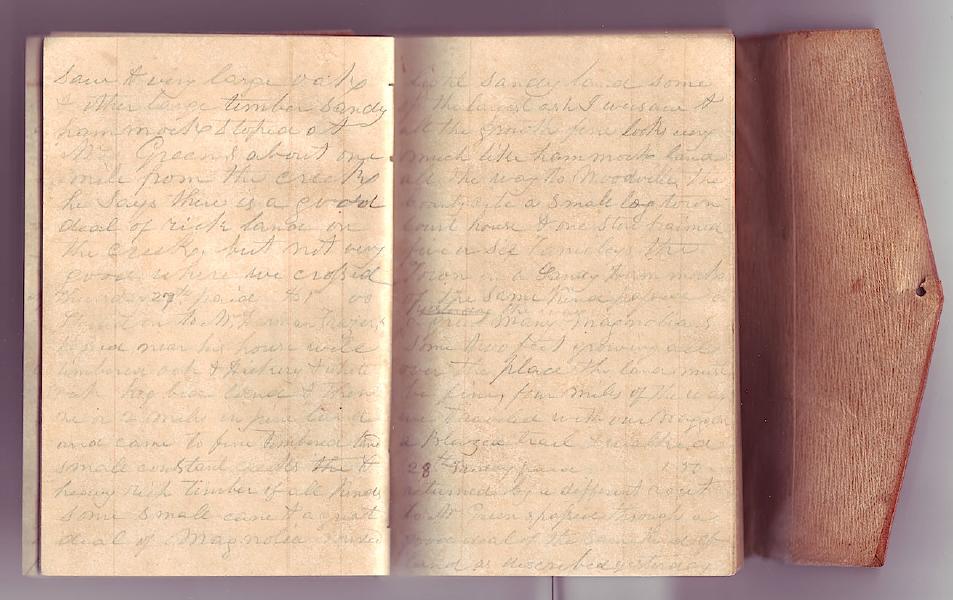 saw & very large oaks
& other large timber Sandy
hammock stoped at
Mr Greens about one
mile from the creek
he Says there is a good
deal of rich land on
the creek, but not very
good where we crossed
Thursday 27th paid $1 00
Went on to
near his house well
timbered oak & hickory & white
oak
in 2 miles in pine land
and came to fine timbered land
small constant creeks the &
heavy rich timber of all kinds
Some Small cane & a great
deal of Magnolia
light Sandy land some
of the largest ash I ever saw &
all the growth fine looks very
much like hammock land
all the way to Woodville the
county site a Small log town
Court house & one Store framed
five or six families the
Town in a Sandy Hammock
of the same kind
a great many magnolias
Some two feet growing all
over the place the land must
be fine, four miles of the way
we traveled with our Waggon
a Blazed trail
28th Friday paid 1.50
returned by a different rout
to Mr Greens passed through a
good deal of the same kind of
land as described yesterday